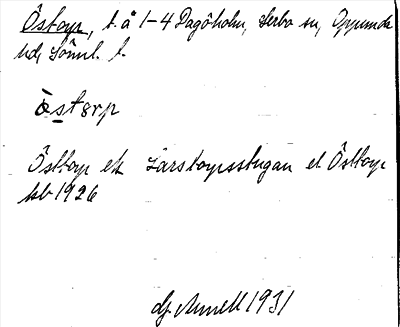 Östorp, t. å 1-4 Dagöholm, Lerbo sn, Oppunda
hd, Södml. l.
östɷrp
Östtorp el Larstorpsstugan el Östtorp
kb 1926
dj Annell 1931